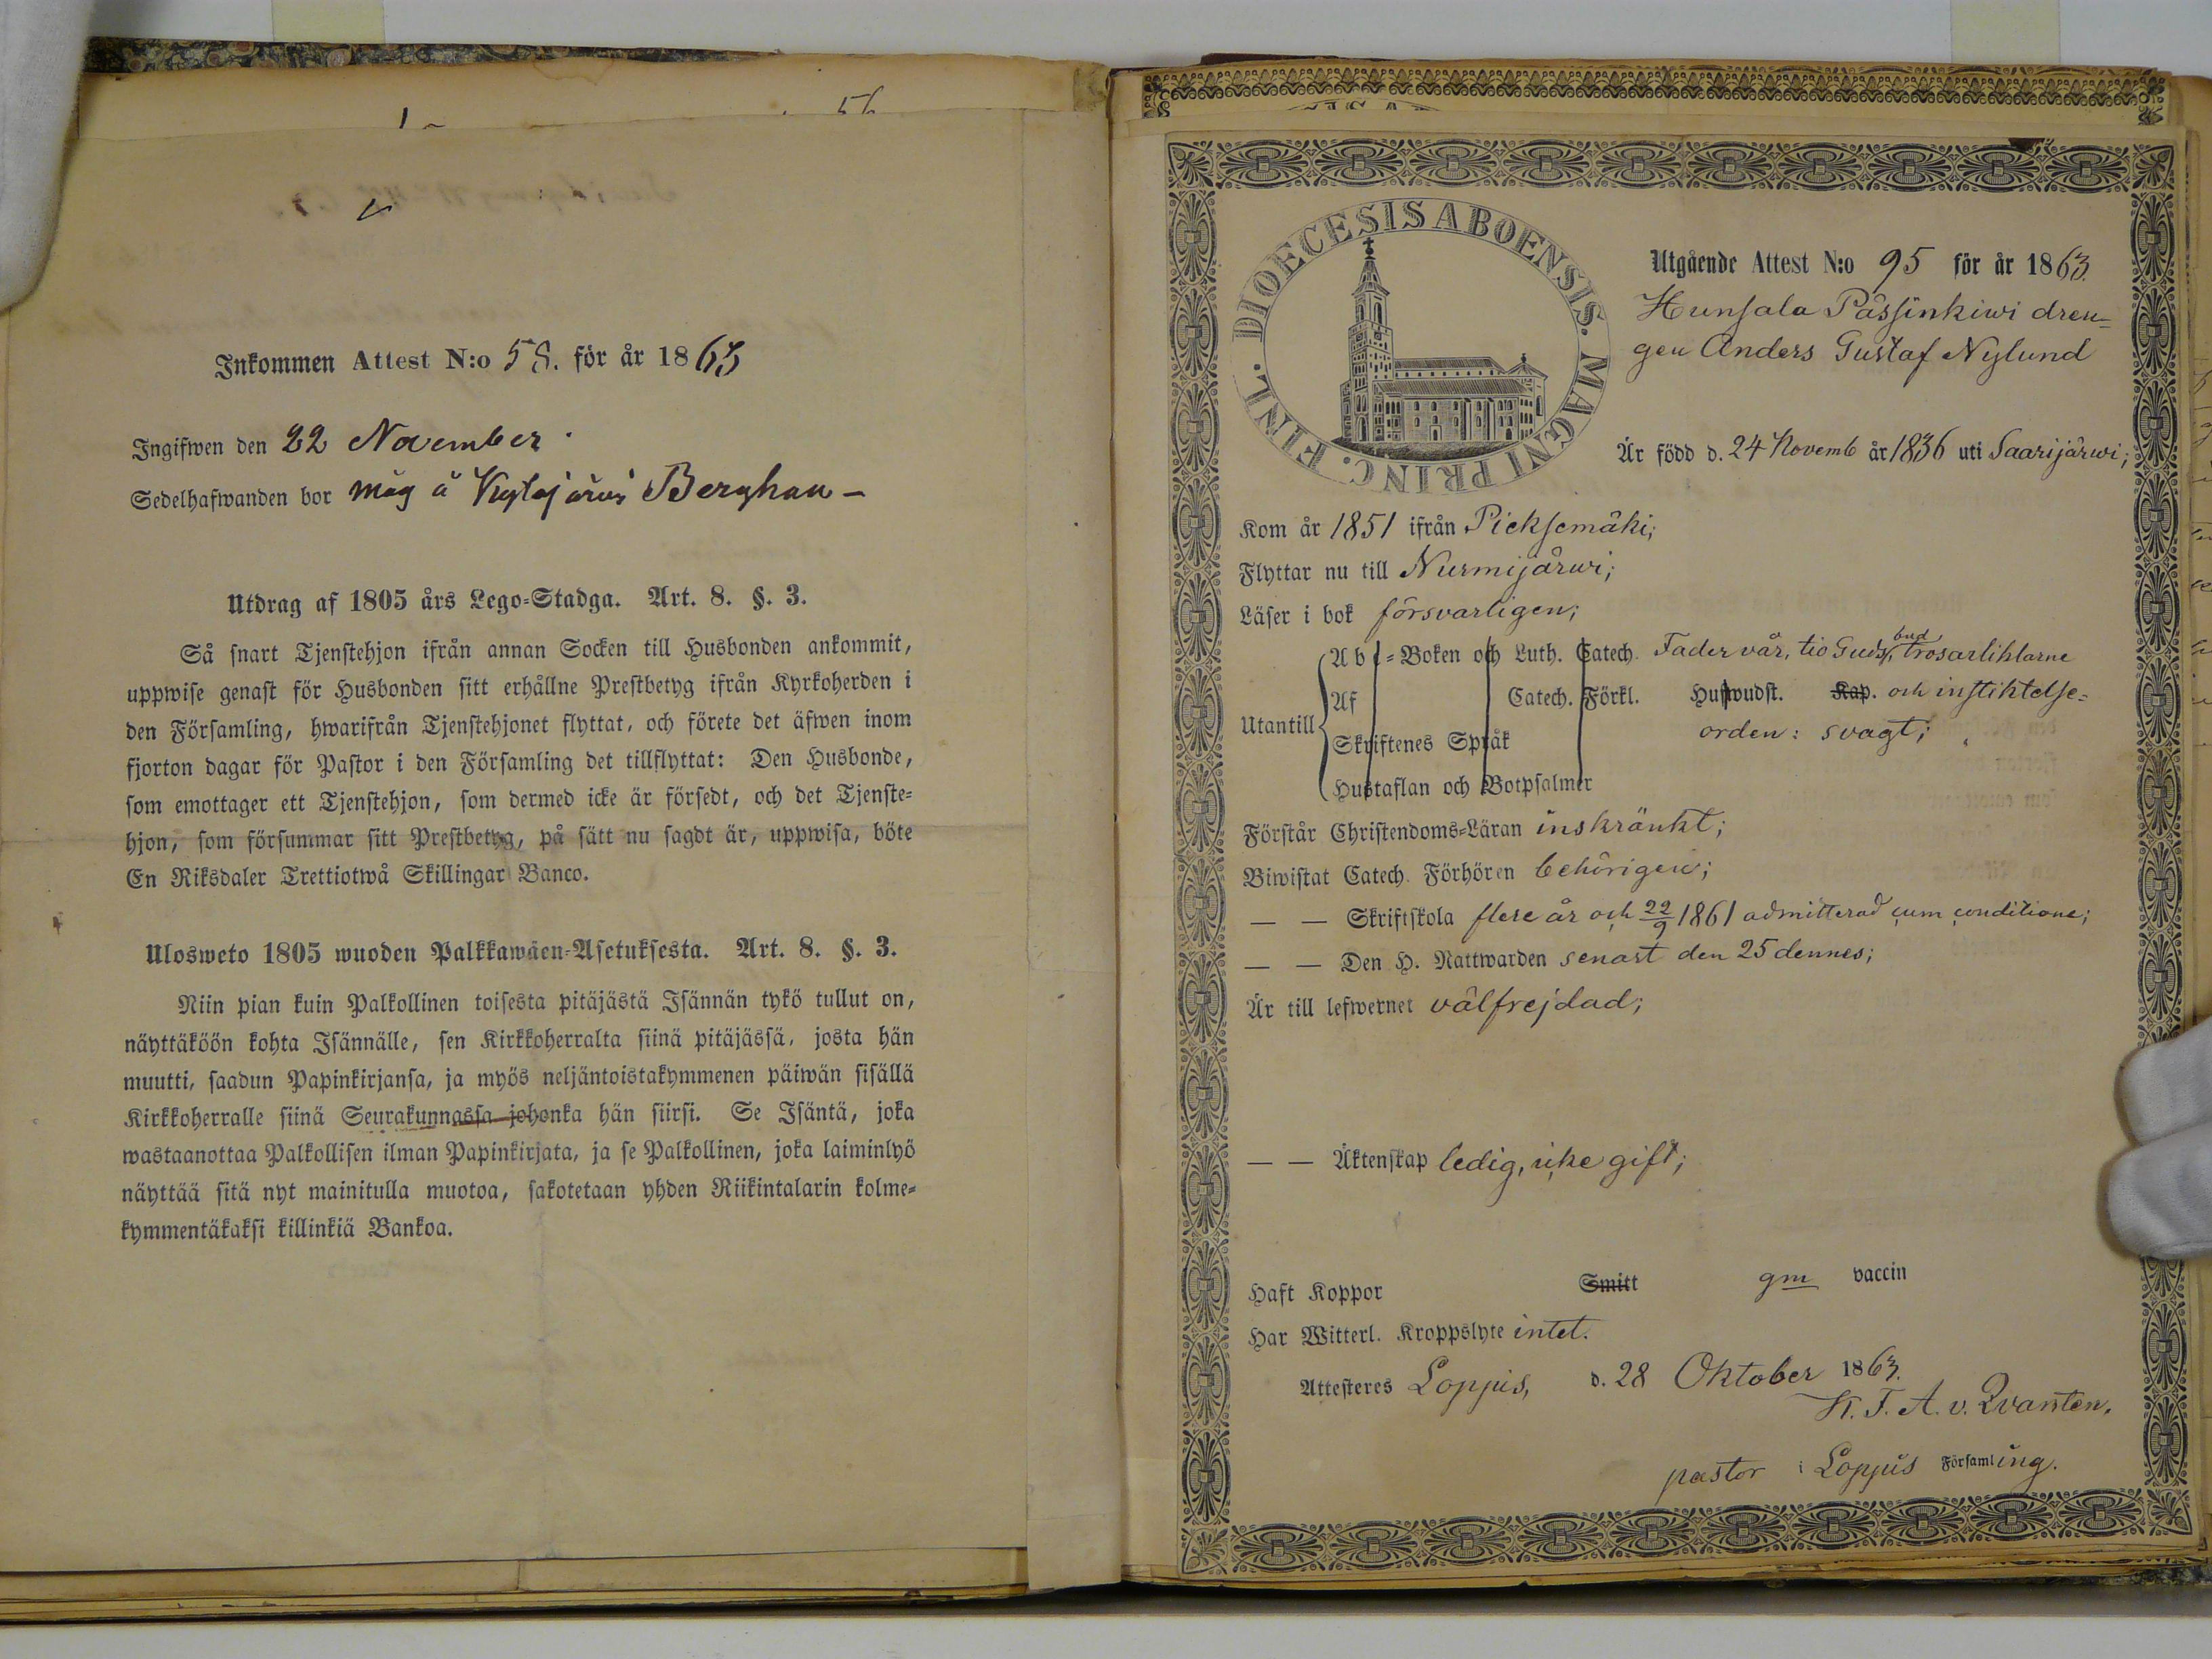 56
Inkommen Attest N:o 58. för år 1863
Ingifwen den 22 November.
Sedelhafwanden bor måg å Kytäjärvi Berghan –
Utdrag af 1805 års Lego-Stadga. Art. 8. §. 3.
Så snart Tjenstehjon ifrån annan Socken till Husbonden ankommit,
uppwise genast för Husbonden sitt erhållne Prestbetyg ifrån Kyrkoherden i
den Församling, hwarifrån Tjenstehjonet flyttat, och förete det äfwen inom
fjorton dagar för Pastor i den Församling det tillflyttat: Den Husbonde,
som emottager ett Tjenstehjon, som dermed icke är försedt, och det Tjenste-
hjon, som försummar sitt Prestbetyg, på sätt nu sagdt är, uppwisa, böte
En Riksdaler Trettiotwå Skillingar Banco.
Ulosweto 1805 wuoden Palkkawäen-Asetuksesta. Art. 8. §. 3.
Niin pian kuin Palkollinen toisesta pitäjästä Isännän tykö tullut on,
näyttäköön kohta Isännälle, sen Kirkkoherralta siinä pitäjässä, josta hän
muutti, saadun Papinkirjansa, ja myös neljäntoistakymmenen päiwän sisällä
Kirkkoherralle siinä Seurakunnassa johonka hän siirsi. Se Isäntä, joka
wastaanottaa Palkollisen ilman Papinkirjata, ja se Palkollinen, joka laiminlyö
näyttää sitä nyt mainitulla muotoa, sakotetaan yhden Riikintalarin kolme-
kymmentäkaksi killinkiä Bankoa.
DIOECESIS ABOENSIS. MAGNI PRINC. FINL.
Utgående Attest N:o 95 för år 1863.
Hunsala Passinkiwi dren-
gen Anders Gustaf Nylund
Är född d. 24 Novemb år 1836 uti Saarijärwi;
Kom år 1851 ifrån Pieksemäki;
Flyttar nu till Nurmijärwi;
Läser i bok försvarligen;
Utantill
Abc-Boken och Luth. Catech. Fader vår, tio Guds bud, trosartiklarne
Af Catech. Förkl. Hufwudst. Kap. och instiktelse-
Skriftenes Språk orden: svagt;
Hustaflan och Botpsalmer
Förstår Christendoms-Läran inskränkt;
Biwistat Catech. Förhören behörigen;
— — Skriftskola flere år och 22/9 1861 admitterad cum conditione;
— — Den H. Nattwarden senast den 25 dennes;
Är till lefwernet välfrejdad;
— — Äktenskap ledig, icke gift;
Haft Koppor Smitt gm vaccin
Har Witterl. Kroppslyte intet.
Attesteres Loppis, d. 28 Oktober 1863.
K. F. A. v. Qvanten.
pastor i Loppis Församling.